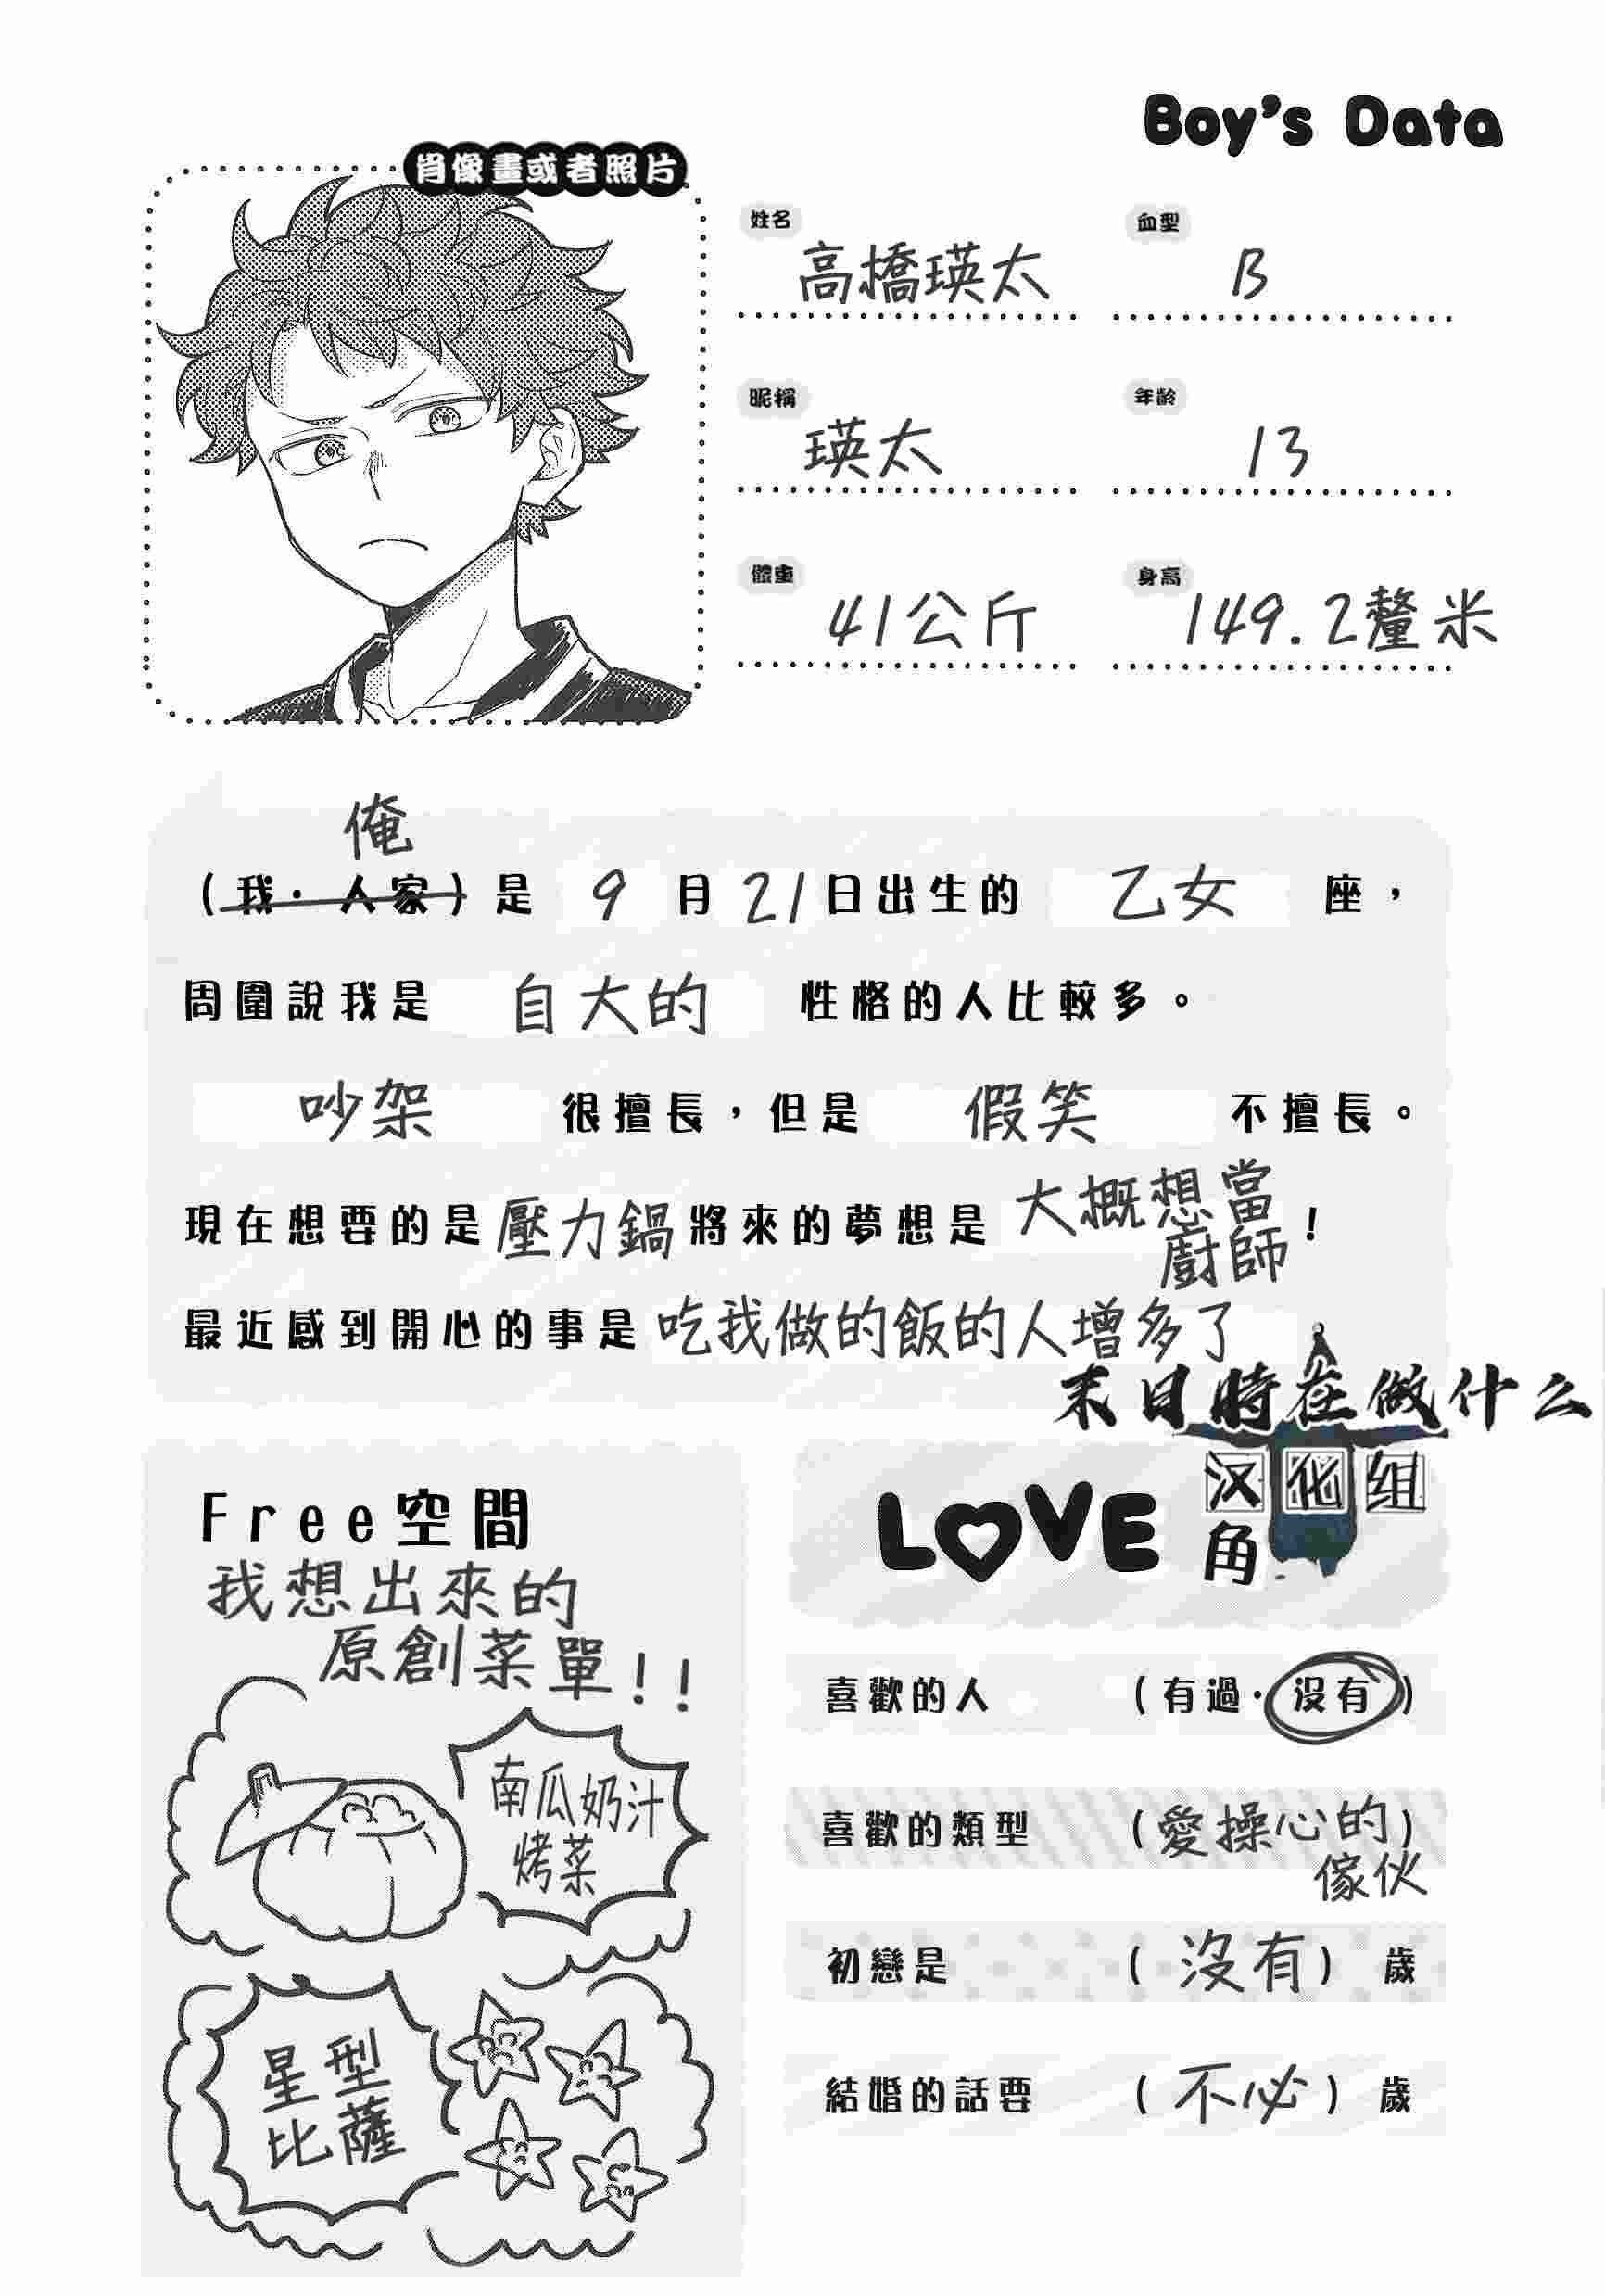 Boy's Data
肖像畫或者照片
姓名
高橋瑛太
血型
B
昵稱
瑛太
年齡
13
體重
41公斤
身高
149.2釐米
俺
(我·人家)是 9 月 21 日出生的 乙女 座,
周圍說我是 自大的 性格的人比較多。
吵架 很擅長,但是 假笑 不擅長。
現在想要的是 壓力鍋 將來的夢想是 大概想當
廚師!
最近感到開心的事是 吃我做的飯的人增多了
末日時在做什么
汉化组
角
Free空間
我想出來的
原創菜單!!
南瓜奶汁
烤菜
星型
比薩
LOVE
喜歡的人 (有過·沒有)
喜歡的類型 (愛操心的)
傢伙
初戀是 (沒有) 歲
結婚的話要 (不必) 歲